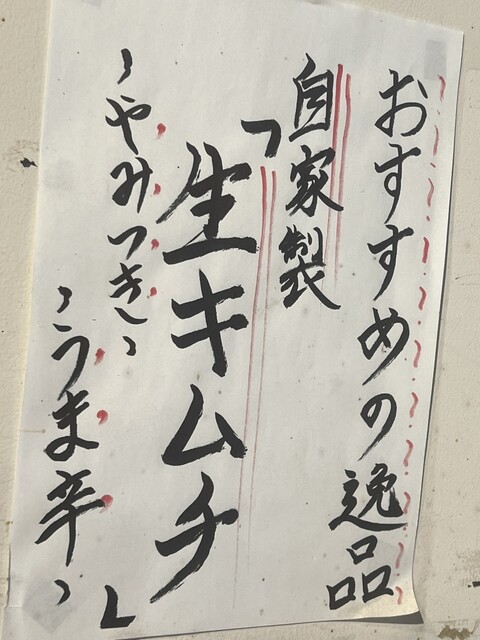 おすすめの逸品
自家製
「生キムチ」
〝やみつき〟
〝うま辛〟